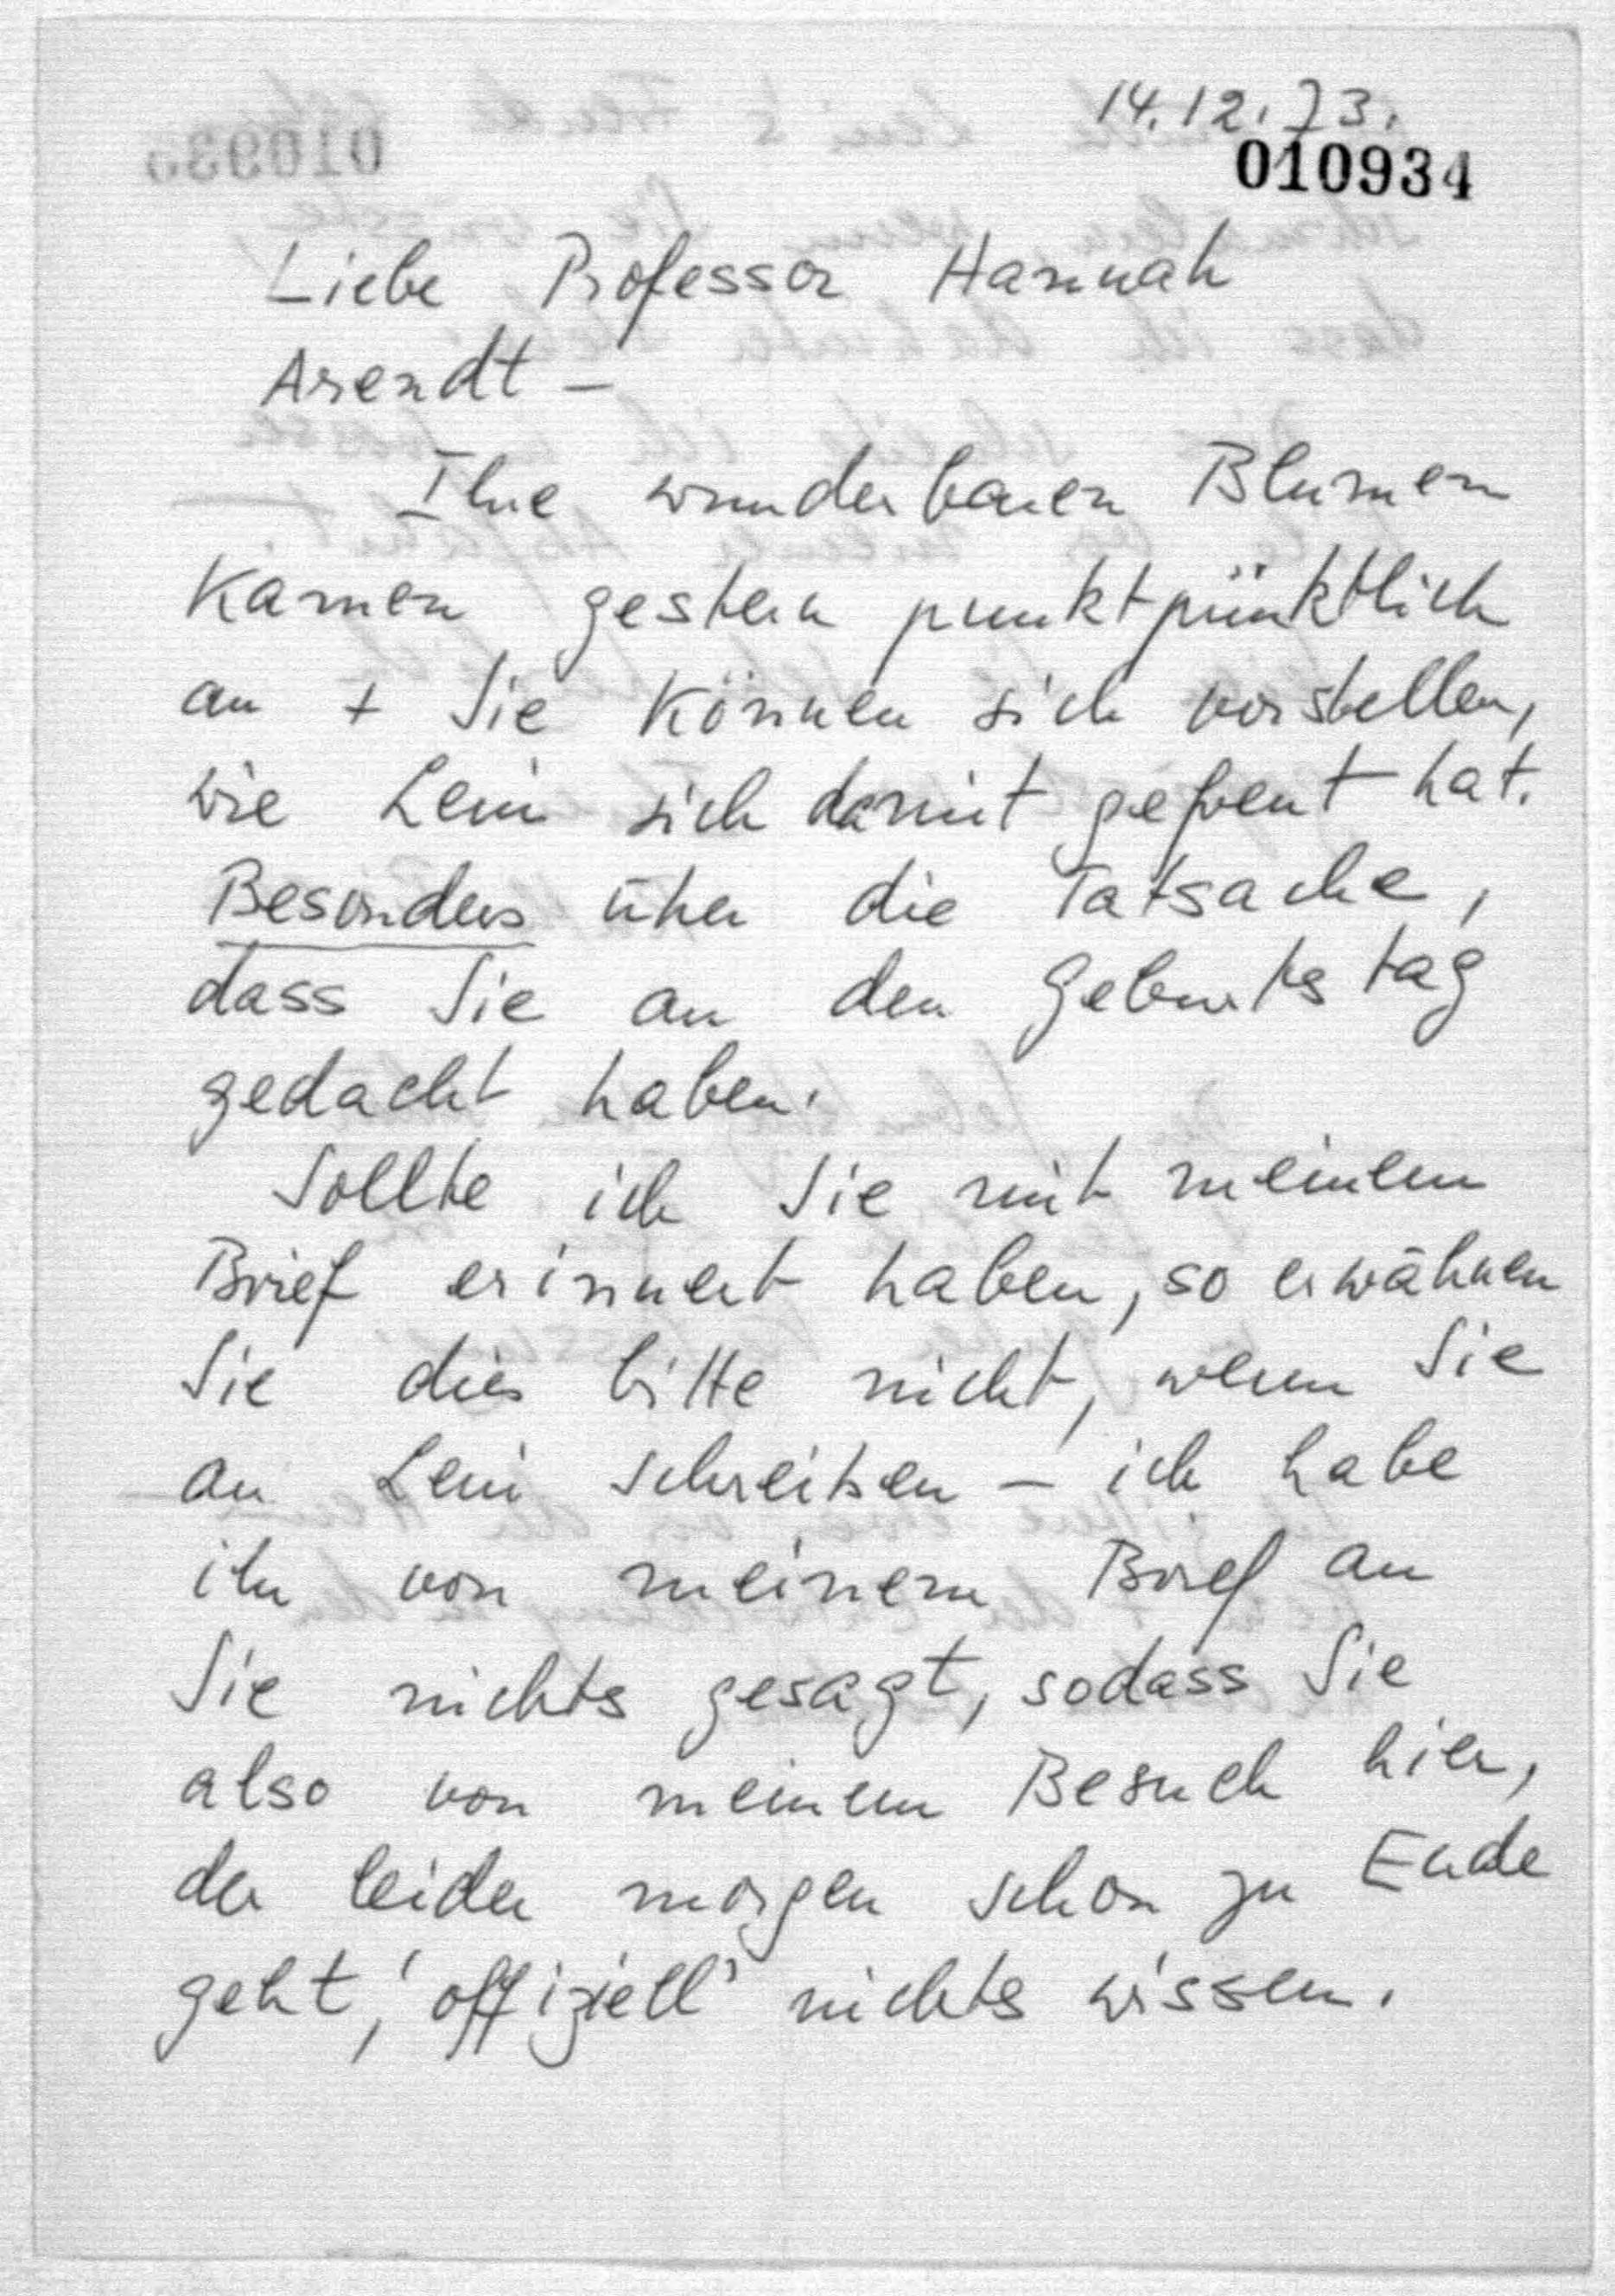 14.12.73.
010934
Liebe Professor Hannah
Arendt –
Ihre wunderbaren Blumen
kamen gestern punktpünktlich
an + Sie können sich vorstellen,
wie Leni sich damit gefreut hat.
Besonders über die Tatsache,
dass Sie an den Geburtstag
gedacht haben.
Sollte ich Sie mit meinem
Brief erinnert haben, so erwähnen
Sie dies bitte nicht, wenn Sie
an Leni schreiben – ich habe
ihr von meinem Brief an
Sie nichts gesagt, sodass Sie
also von meinem Besuch hier,
der leider morgen schon zu Ende
geht, 'offiziell' nichts wissen.